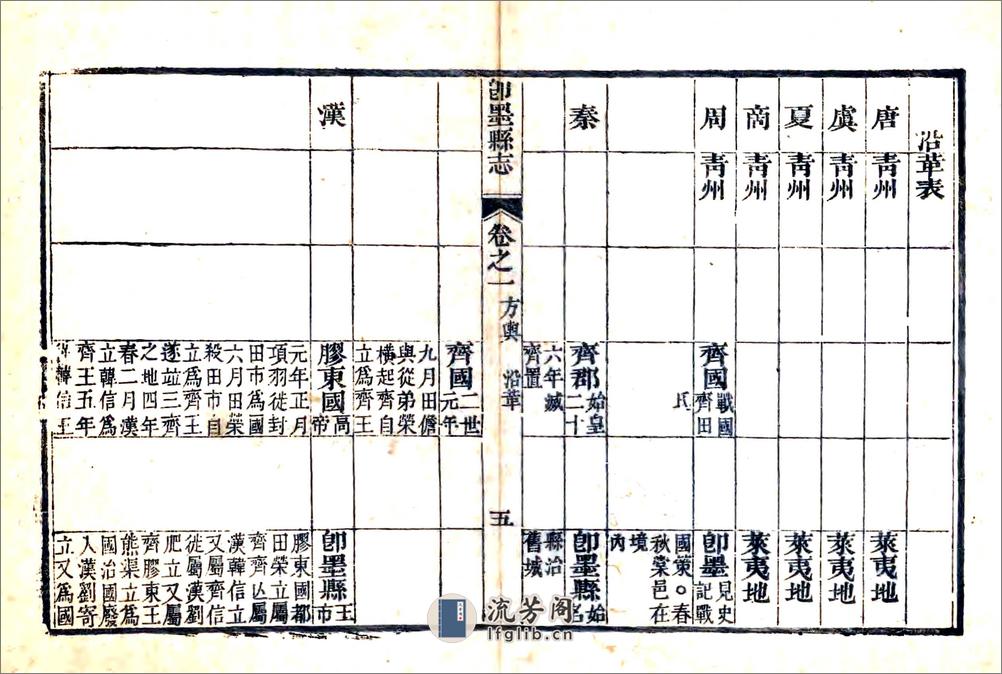 沿革表
唐 靑州 萊夷地
虞 靑州 萊夷地
夏 靑州 萊夷地
商 靑州 萊夷地
周 靑州
齊國 戰國
齊田
氏
卽墨 見史
記戰
國策○春
秋棠邑在
境
內
秦
齊郡 始皇
二十
六年滅
齊置
卽墨縣 始
名
縣治
舊城
卽墨縣志 卷之一 方輿 沿革 五
齊國 二世
元年
九月田儋
與從弟榮
橫起齊自
立爲齊王
漢
膠東國 高
帝
元年正月
項羽徙封
田市爲國
六月田榮
殺田市自
立爲齊王
遂並三齊
之地四年
春二月漢
立韓信爲
齊王五年
韓信王
卽墨縣 王
市
膠東國都
田榮立屬
齊齊亾屬
漢韓信立
又屬齊信
徙屬漢劉
肥立又屬
齊膠東王
熊渠立爲
國治國廢
入漢劉寄
立又爲國
流芳阁
lfglib.cn